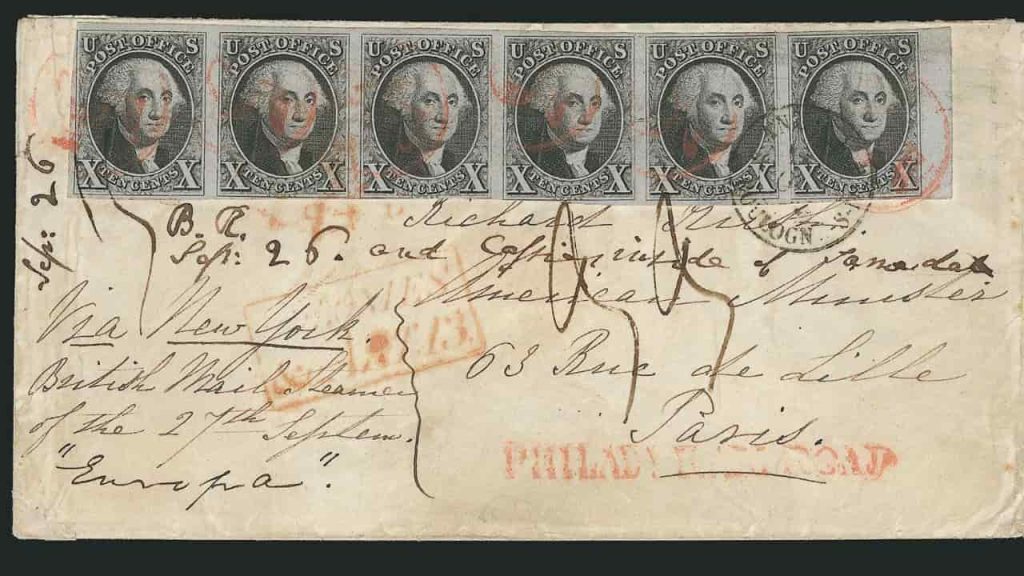 U S U S U S U S U S U S
POST OFFICE POST OFFICE POST OFFICE POST OFFICE POST OFFICE POST OFFICE
X TEN CENTS X X TEN CENTS X X TEN CENTS X X TEN CENTS X X TEN CENTS X X TEN CENTS X
Sep: 26
Richard
B. R.
Sep: 26. and inside of
American Minister
Via New York.
63 Rue de Lille
British Mail Steamer
Paris.
of the 27th Septem.
"Europa".